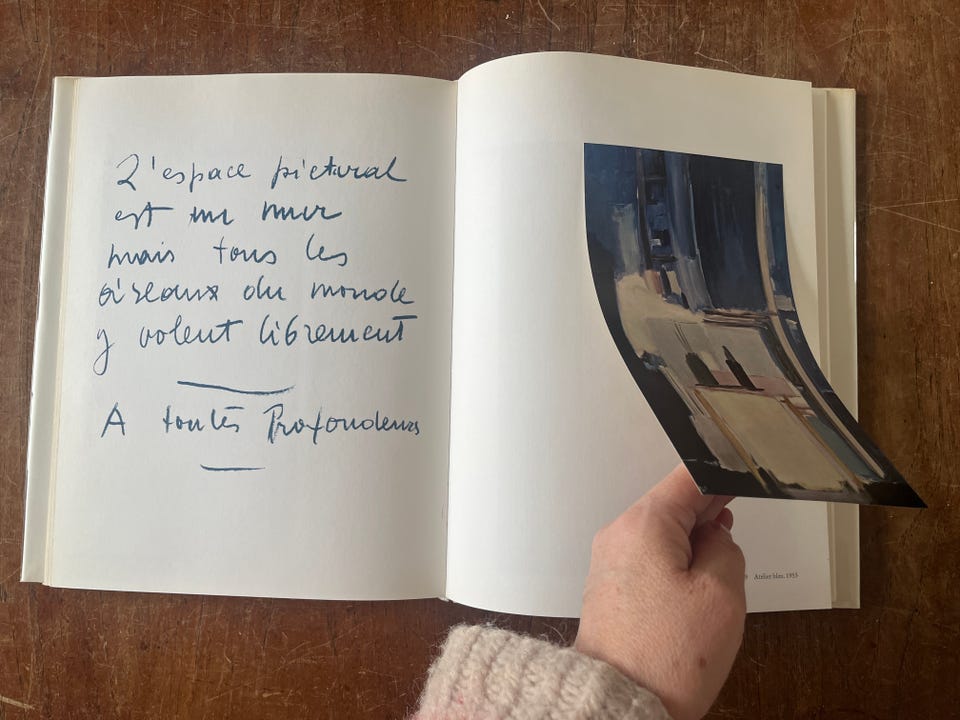 L'espace pictural
est un mur
mais tous les
oiseaux du monde
y volent librement
A toutes Profondeurs
9 Atelier bleu, 1953